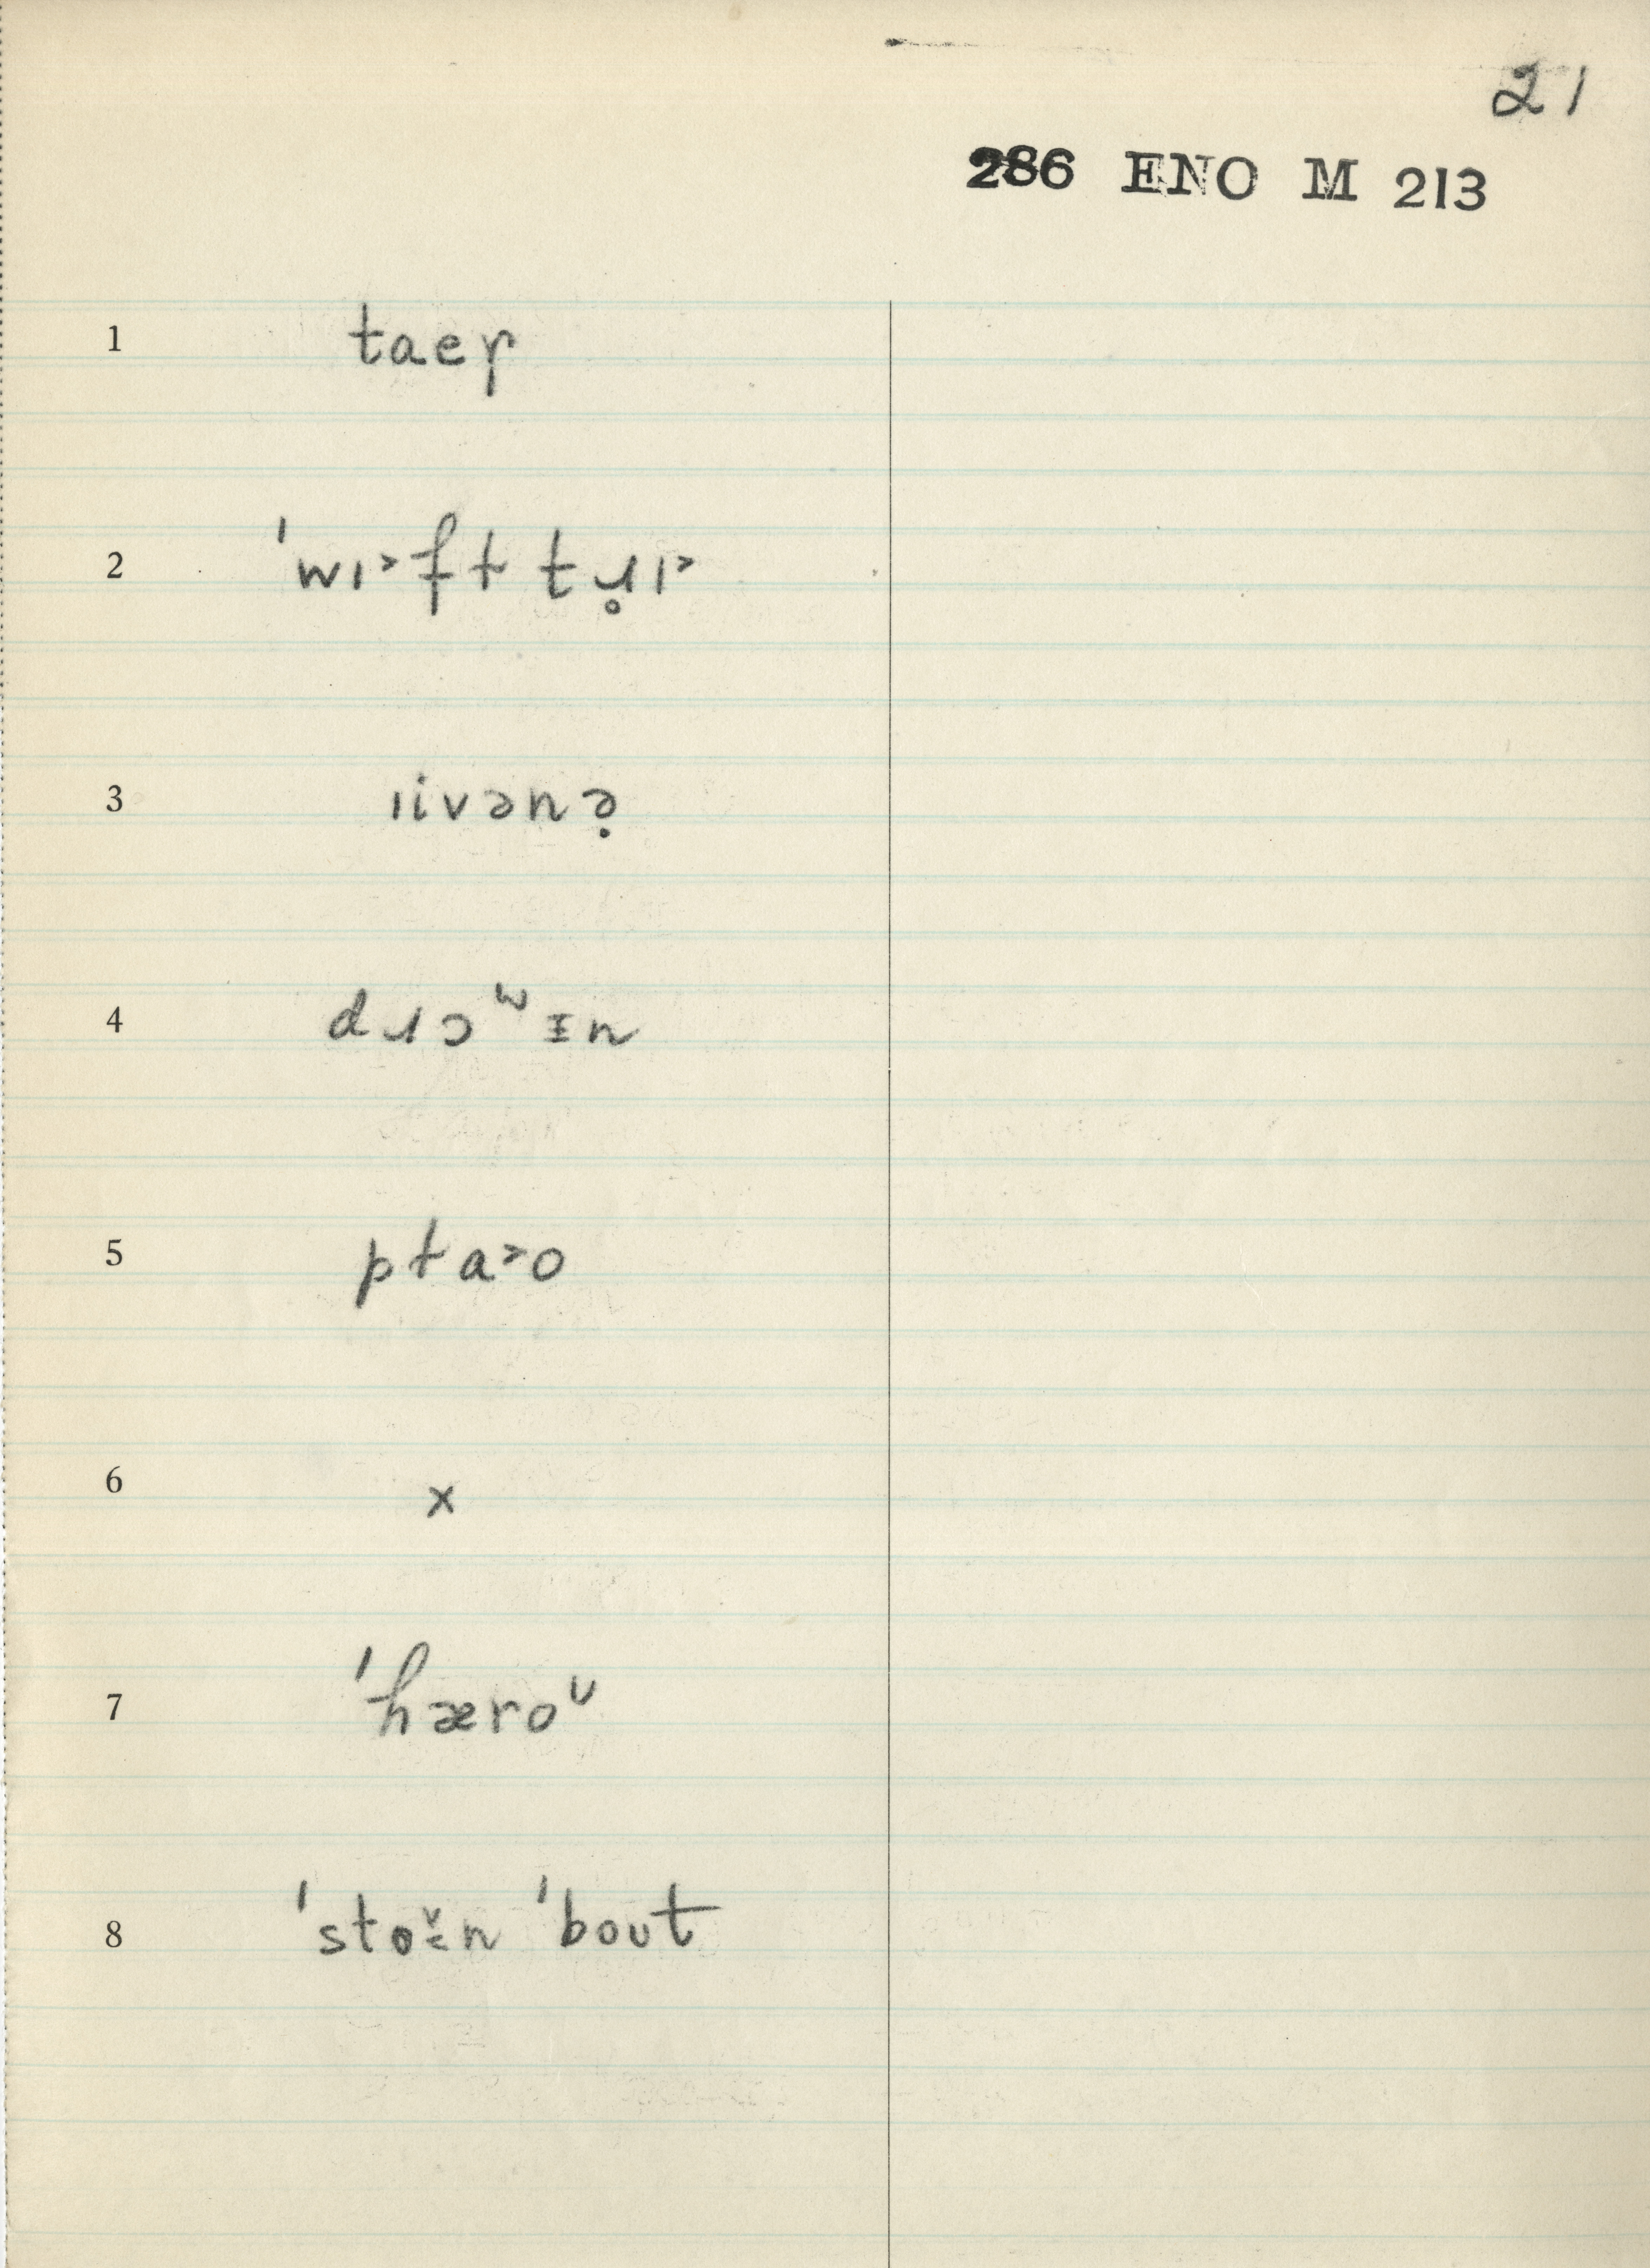 21
286 ENO M 213
1 taeɼ
2 ˈwɪ˃ft tɹ̥ɪ˃
3 ɪivənə̣
4 dɹɔʷɪn
5 pta˃o
6 x
7 ˈhæroᶷ
8 ˈstoɪ̆n ˈbout